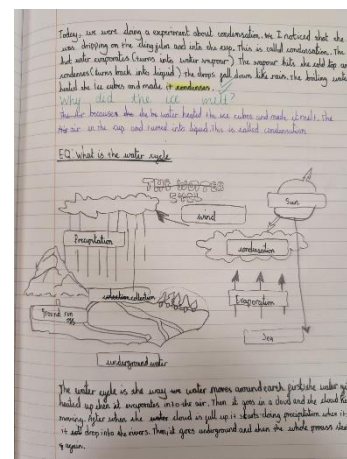 Today, we were doing a experiment about condensation. We I noticed that the
was dripping on the cling film and into the cup. This is called condensation. The
hot water evaporates (turns into water vapour) The vapour hits the cold top and
condenses (turns back into liquid) the drops fall down like rain. the boiling water
heated the ice cubes and made it condenses.
Why did the ice melt?
because the water heated the ice cubes and made it melt. The
air in the cup and turned into liquid. this is called condensation
EQ: What is the water cycle
THE WATER
CYCL
Sun
wind
Precipitation
condensation
Evaporation
collection
Ground run
Sea
underground water
The water cycle is the way we water moves around earth. first, the water
heated up then it evaporates into the air. Then it goes in a cloud and the cloud
moving. After when the water cloud is full up it starts doing precipitation when it
it will drop into the rivers. Then, it goes underground and then the whole process
again.